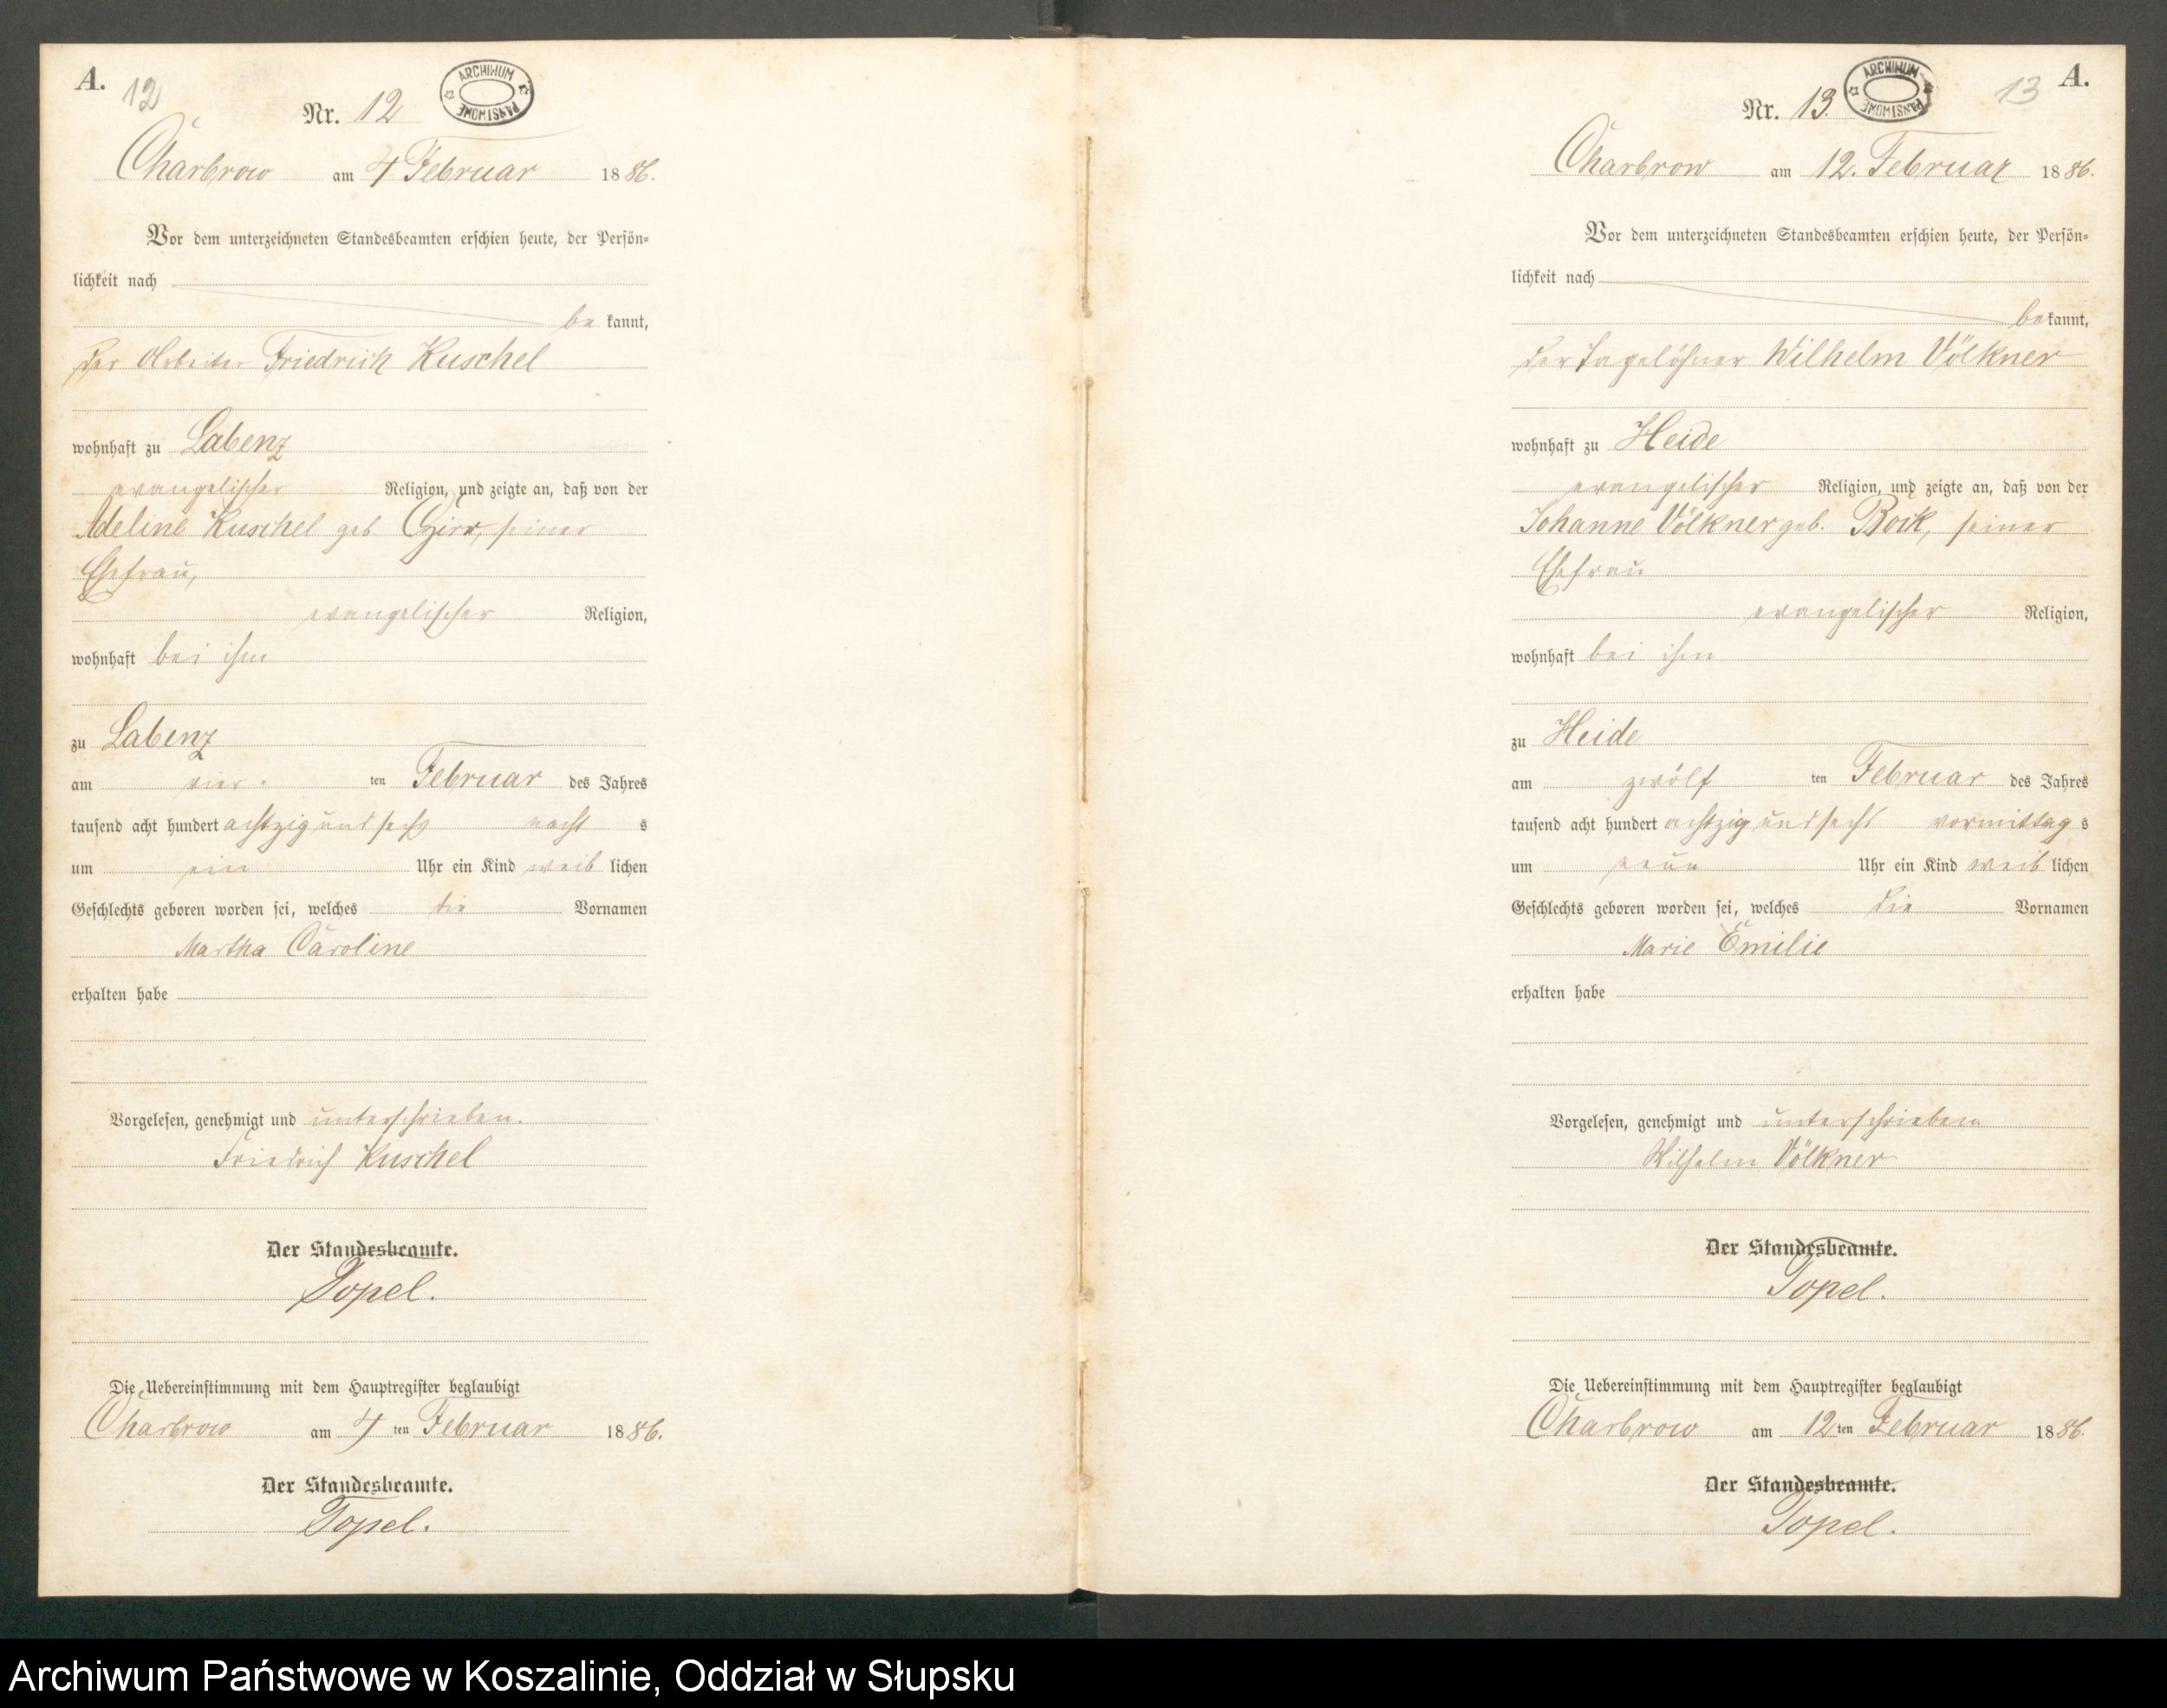 A.
12
Nr. 12
ARCHIWUM PAŃSTWOWE
Charbrow am 4 Februar 1886.
Vor dem unterzeichneten Standesbeamten erschien heute, der Persön-
lichkeit nach
bekannt,
der Arbeiter Friedrich Kuschel
wohnhaft zu Labenz
evangelischer Religion, und zeigte an, daß von der
Adeline Kuschel geb. seiner
Ehefrau,
evangelischer Religion,
wohnhaft bei ihm
zu Labenz
am vier ten Februar des Jahres
tausend acht hundert achtzig und sechs nachts
um ein Uhr ein Kind weiblichen
Geschlechts geboren worden sei, welches die Vornamen
Martha Caroline
erhalten habe
Vorgelesen, genehmigt und unterschrieben.
Friedrich Kuschel
Der Standesbeamte.
Topel.
Die Uebereinstimmung mit dem Hauptregister beglaubigt
Charbrow am 4 ten Februar 1886.
Der Standesbeamte.
Topel.
A.
13
Nr. 13.
ARCHIWUM PAŃSTWOWE
Charbrow am 12. Februar 1886.
Vor dem unterzeichneten Standesbeamten erschien heute, der Persön-
lichkeit nach
bekannt,
der Tagelöhner Wilhelm Völkner
wohnhaft zu Heide
evangelischer Religion, und zeigte an, daß von der
Johanne Völkner geb. Bock, seiner
Ehefrau
evangelischer Religion,
wohnhaft bei ihm
zu Heide
am zwölf ten Februar des Jahres
tausend acht hundert achtzig und sechs vormittags
um neun Uhr ein Kind weiblichen
Geschlechts geboren worden sei, welches die Vornamen
Marie Emilie
erhalten habe
Vorgelesen, genehmigt und unterschrieben
Wilhelm Völkner
Der Standesbeamte.
Topel.
Die Uebereinstimmung mit dem Hauptregister beglaubigt
Charbrow am 12 ten Februar 1886.
Der Standesbeamte.
Topel.
Archiwum Państwowe w Koszalinie, Oddział w Słupsku